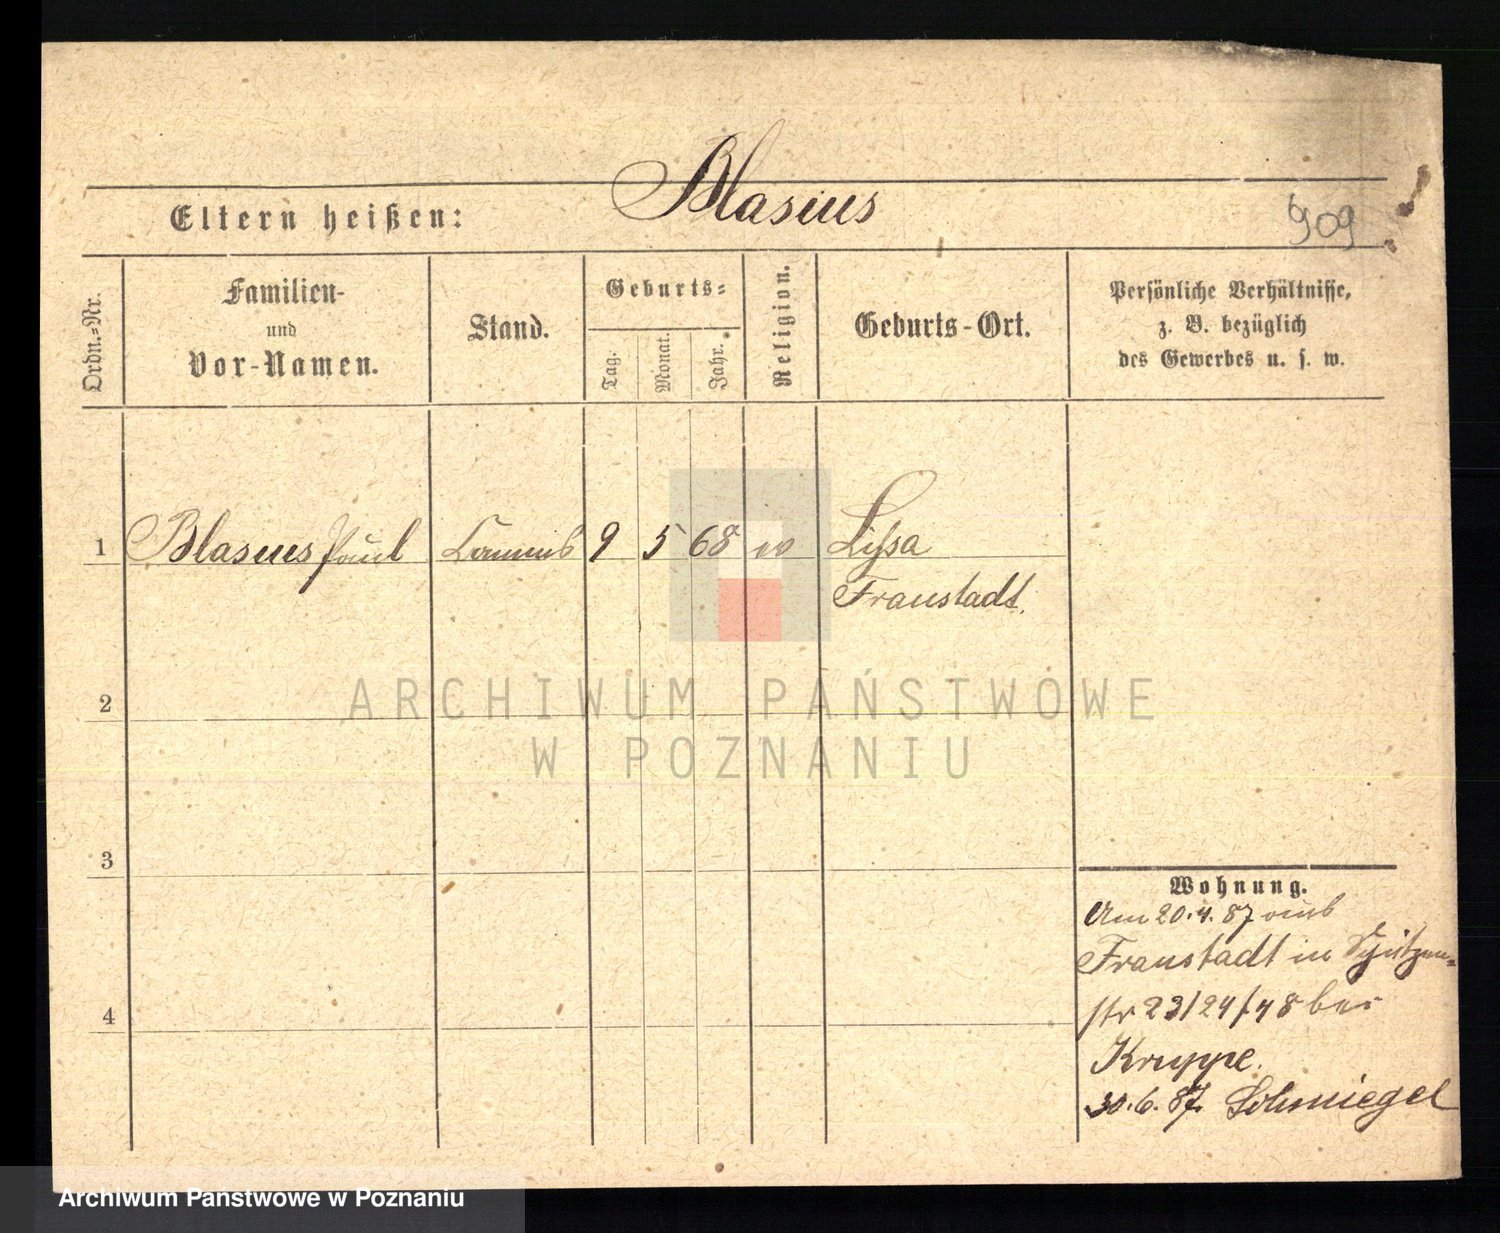 Blasius
Eltern heißen:
909
Ordn.-Nr.
Familien-
und
Vor-Namen.
Stand.
Geburts-
Tag.
Monat.
Jahr.
Religion.
Geburts-Ort.
Persönliche Verhältnisse,
z. B. bezüglich
des Gewerbes u. s. w.
1 Blasius Paul Commis 9 5 68 Lissa
Fraustadt.
2
ARCHIWUM PAŃSTWOWE
W POZNANIU
3
Wohnung.
Am 20.4.87 aus
Fraustadt in Schützen-
str 23/24/48 bei
4
Kruppe.
30.6.87. Schmiegel
Archiwum Państwowe w Poznaniu